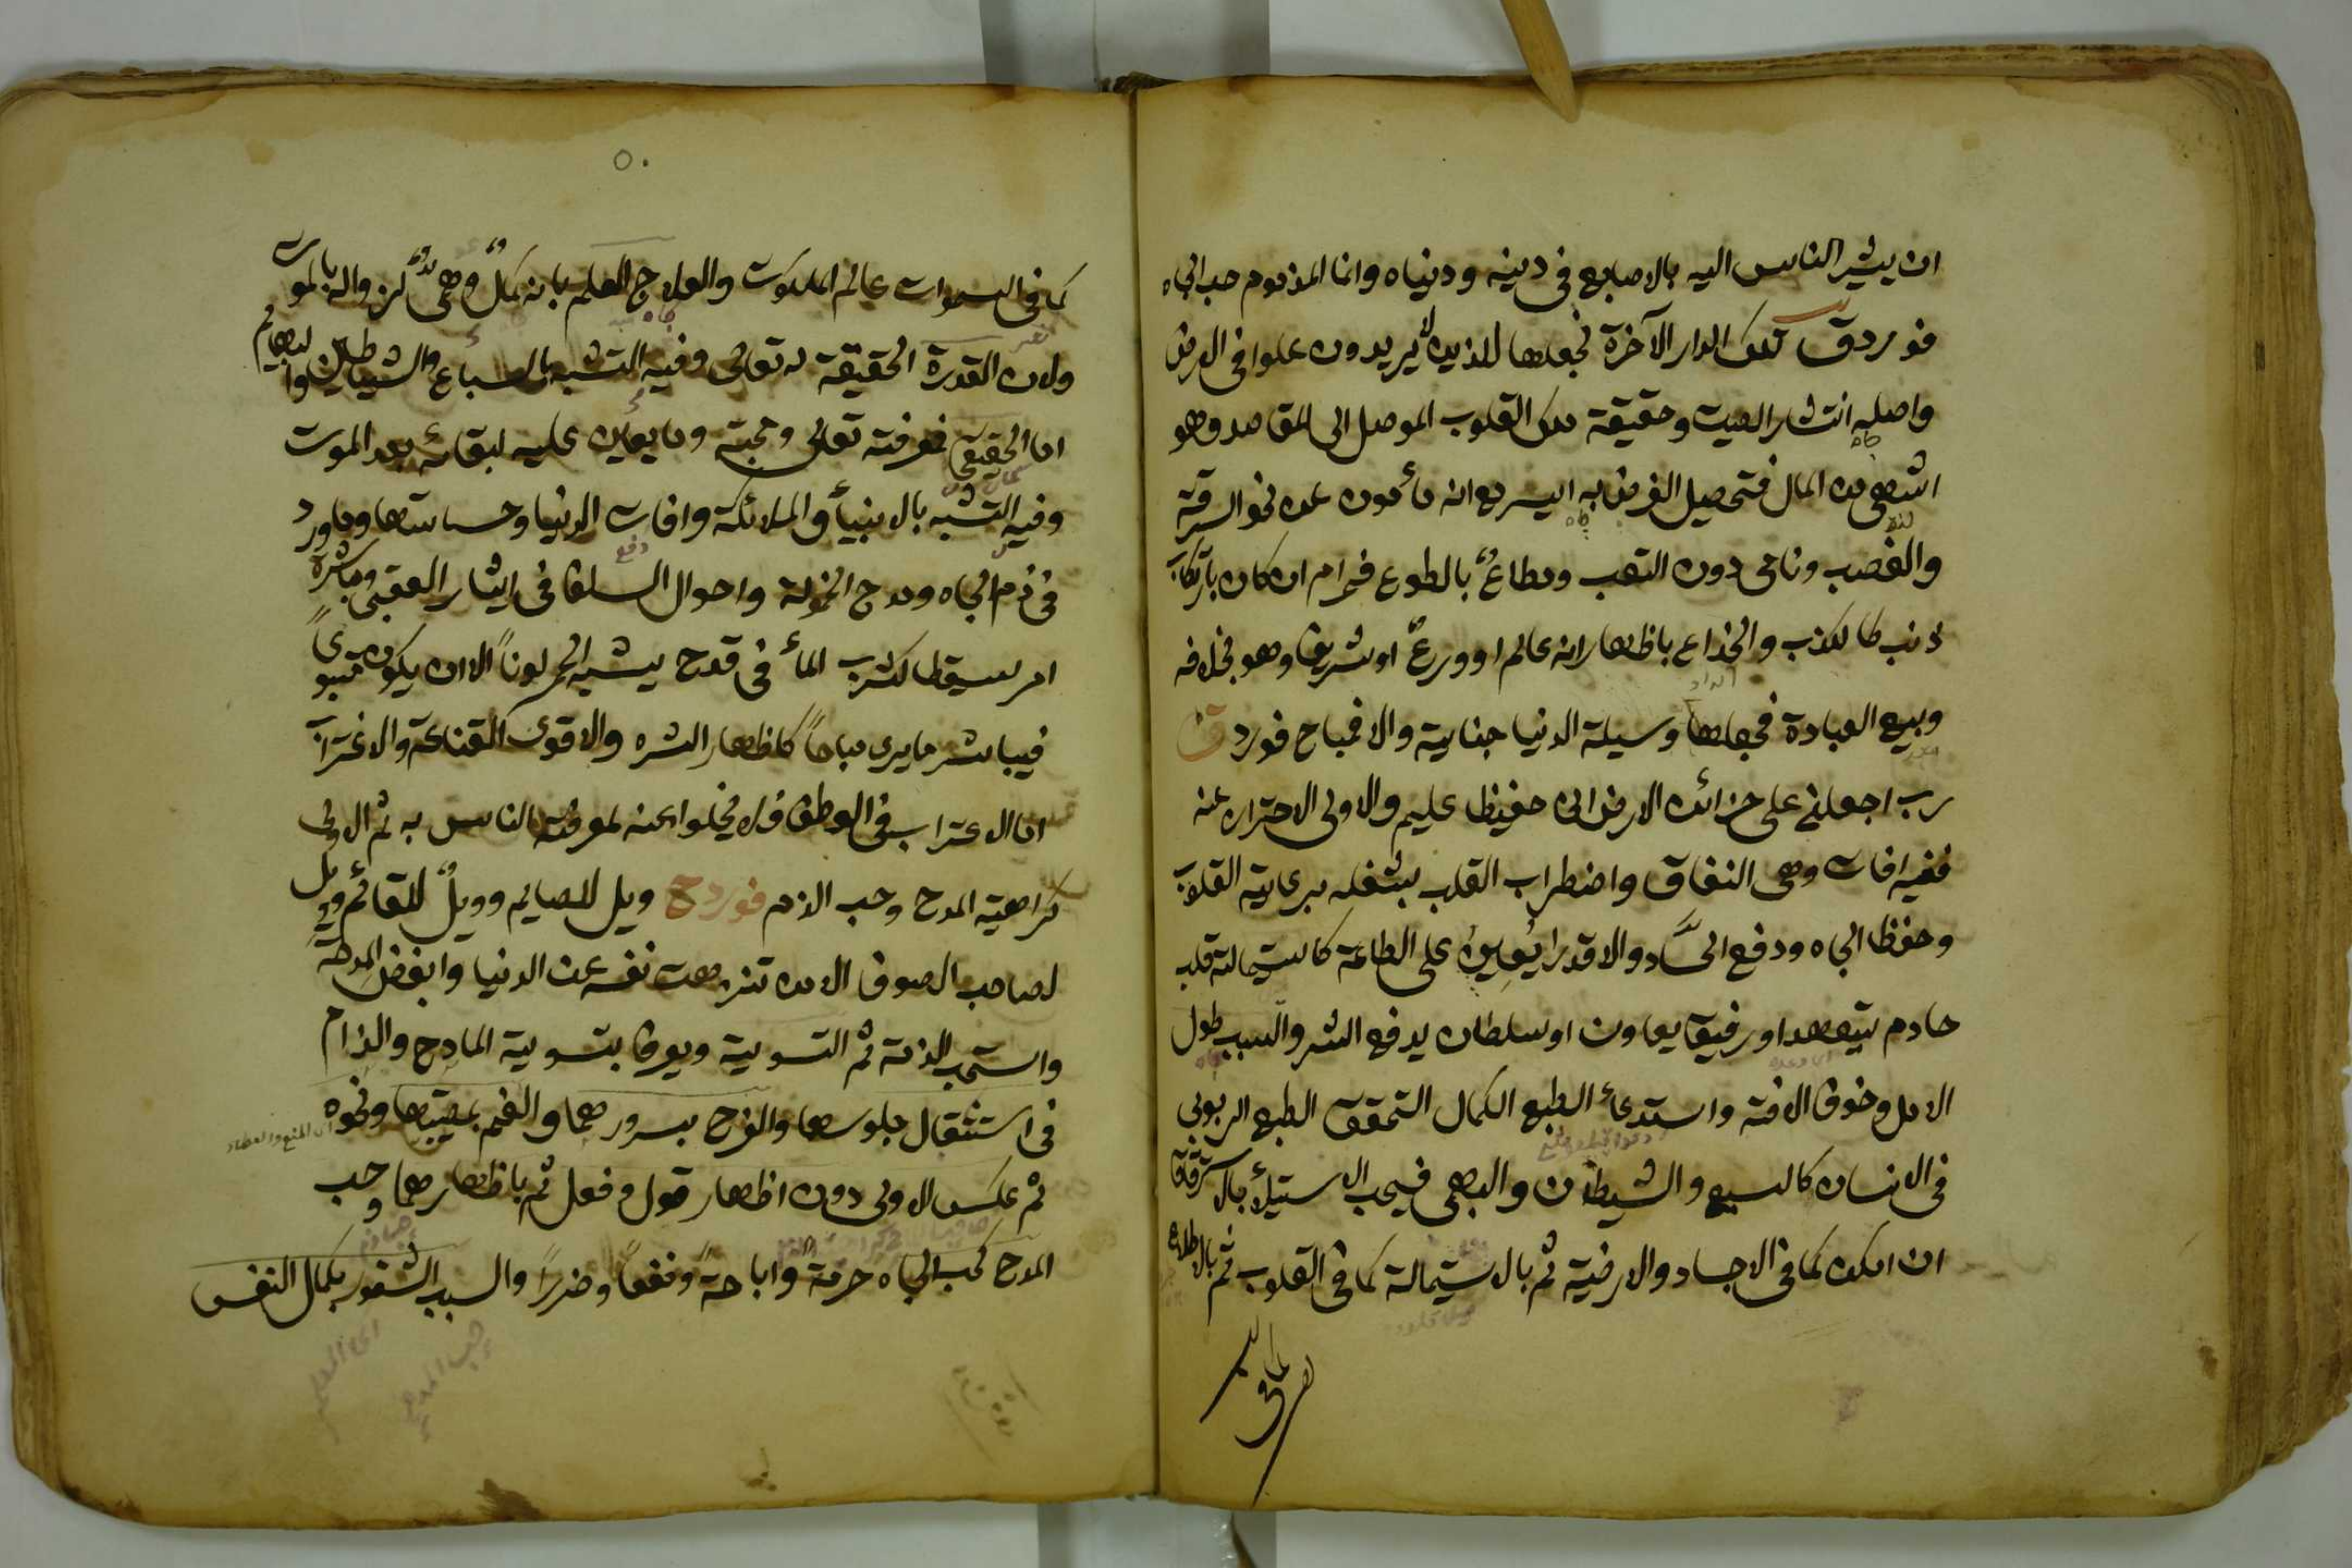 ان يشير الناس اليه بالاصابع فى دينه ودنياه وانما المذموم حب الجاه
فورد ق تلك الدار الآخرة نجعلها للذين لا يريدون علوا فى الارض
واصله انتشار الصيت وحقيقة ملك القلوب الموصل الى المقاصد وهو
اشهى من المال فتحصيل الغرض به ايسر مع انه مأمون عن نحو السرقة
والغصب ونامى دون التعب ومطاع بالطوع فحرام ان كان بارتكاب
ذنب كالكذب والخداع باظهار انه عالم او ورع او شريف وهو بخلافه
وبيع العبادة فجعلها وسيلة الدنيا جناية والا فمباح فورد ق
رب اجعلنى على خزائن الارض انى حفيظ عليم والاولى الاحتراز عنه
ففيه افات وهى النفاق واضطراب القلب بشغله برعاية القلوب
وحفظ الجاه ودفع الحساد والا قدرا يعين على الطاعة كاستمالة قلب
خادم يتعهد او رفيق يعاون او سلطان يدفع الشر والسبب طول
الامل وخوف الافة واستدعاء الطبع الكمال التحقق الطبع الربوبى
فى الانسان كالسبع والشيطان والبهمى فيحب الاستيلاء بالاسترقاق
ان امكن كما فى الاجساد والارضية ثم بالاستمالة كما فى القلوب ثم بالاطلاع
كما فى السموات
٥٠
كما فى السموات عالم الملكوت والعلاج العلم بانه كمال وهمى لزواله بالموت
ولان القدرة الحقيقة له تعالى وفيه التشبه بالسباع والشياطين والبهايم
اما الحقيقى فمعرفته تعالى ومحبته وما يعين عليه لبقائه بعد الموت
وفيه التشبه بالانبياء والملائكة وافات الدنيا وخساستها وما ورد
فى ذم الجاه ومدح الخمولة واحوال السلف فى ايثار العقبى ومباشرة
امر يسقط كشرب الماء فى قدح يشبه الخمر لونا الا ان يكون متبوعا
فيباشر ما يرى مباحا كاظهار الشره والاقوى القناعة والاغتراب
اما الاعتزاب فى الوطن فلا يخلو عنه لمعرفة الناس به ثم الاولى
كراهية المدح وحب الذم فورد ح ويل للصايم وويل للقائم وويل
لصاحب الصوف الا من تنزهت نفسه عن الدنيا وابغض المدحة
واستحب المذمة ثم التسوية ويعرف بتسوية المادح والذام
فى استثقال جلوسهما والفرح بسرورهما والغم بمصيبتهما ونحوه
ثم عكس الاولى دون اظهار قول وفعل ثم باظهارهما وحب
المدح كحب الجاه حرمة واباحة ونفعا وضررا والسبب الشعور بكمال النفس